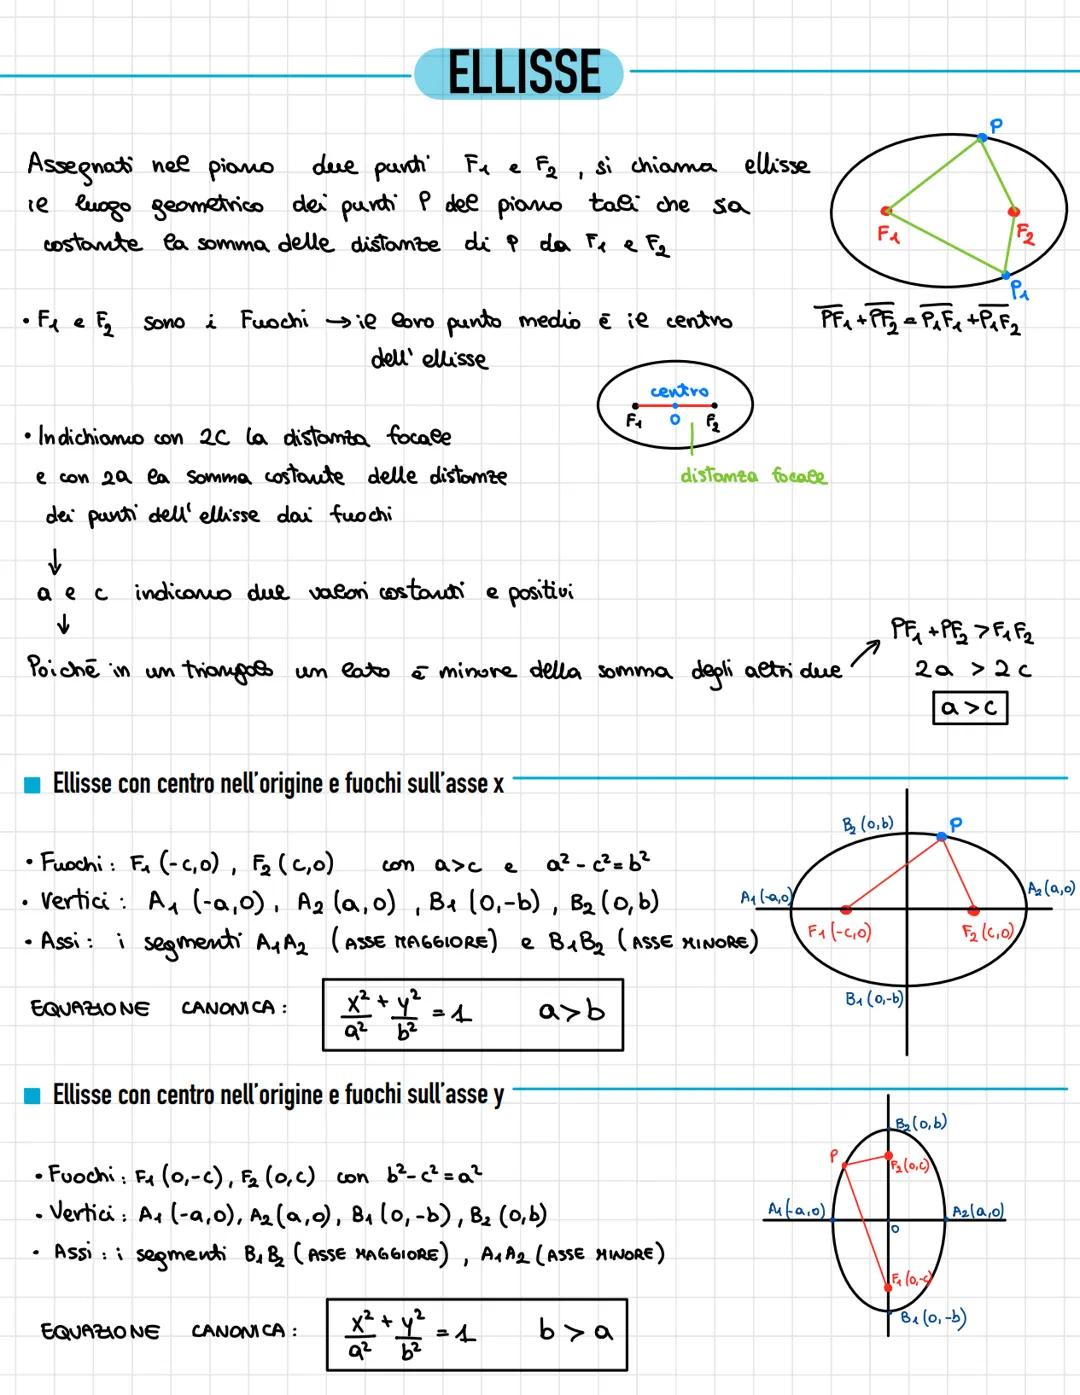 ELLISSE
Assegnati nel piano due punti F₁ e F₂, si chiama ellisse
il luogo geometrico dei punti P del piano tali che sia
costante la somma delle distanze di P da F₁ e F₂
P
F₁
F₂
P₁
PF₁ + PF₂ = P₁F₁ + P₁F₂
• F₁ e F₂ sono i Fuochi → il loro punto medio è il centro
dell'ellisse
centro
F₁ O F₂
distanza focale
• Indichiamo con 2C la distanza focale
e con 2a la somma costante delle distanze
dei punti dell'ellisse dai fuochi
↓
a e c indicano due valori costanti e positivi
↓
Poichē in un triangolo un lato ē minore della somma degli altri due
PF₁ + PF₂ > F₁F₂
2a > 2c
a > c
Ellisse con centro nell'origine e fuochi sull'asse x
• Fuochi: F₁ (-c,0), F₂ (c,0) con a>c e a² - c² = b²
• Vertici: A₁ (-a,0), A₂ (a,0), B₁ (0,-b), B₂ (0,b)
• Assi: i segmenti A₁A₂ (ASSE MAGGIORE) e B₁B₂ (ASSE MINORE)
EQUAZIONE CANONICA: x²/a² + y²/b² = 1 a>b
B₂ (0,b)
P
A₁ (-a,0)
A₂ (a,0)
F₁ (-c,0)
F₂ (c,0)
B₁ (0,-b)
Ellisse con centro nell'origine e fuochi sull'asse y
• Fuochi: F₁ (0,-c), F₂ (0,c) con b² - c² = a²
• Vertici: A₁ (-a,0), A₂ (a,0), B₁ (0,-b), B₂ (0,b)
• Assi: i segmenti B₁B₂ (ASSE MAGGIORE), A₁A₂ (ASSE MINORE)
EQUAZIONE CANONICA: x²/a² + y²/b² = 1 b > a
B₂ (0,b)
P
F₂ (0,c)
A₁ (-a,0)
A₂ (a,0)
O
F₁ (0,-c)
B₁ (0,-b)